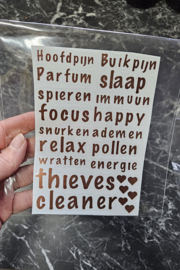 Hoofdpijn Buikpijn
Parfum slaap
spieren immuun
focus happy
snurken ademen
relax pollen
wratten energie
thieves
cleaner